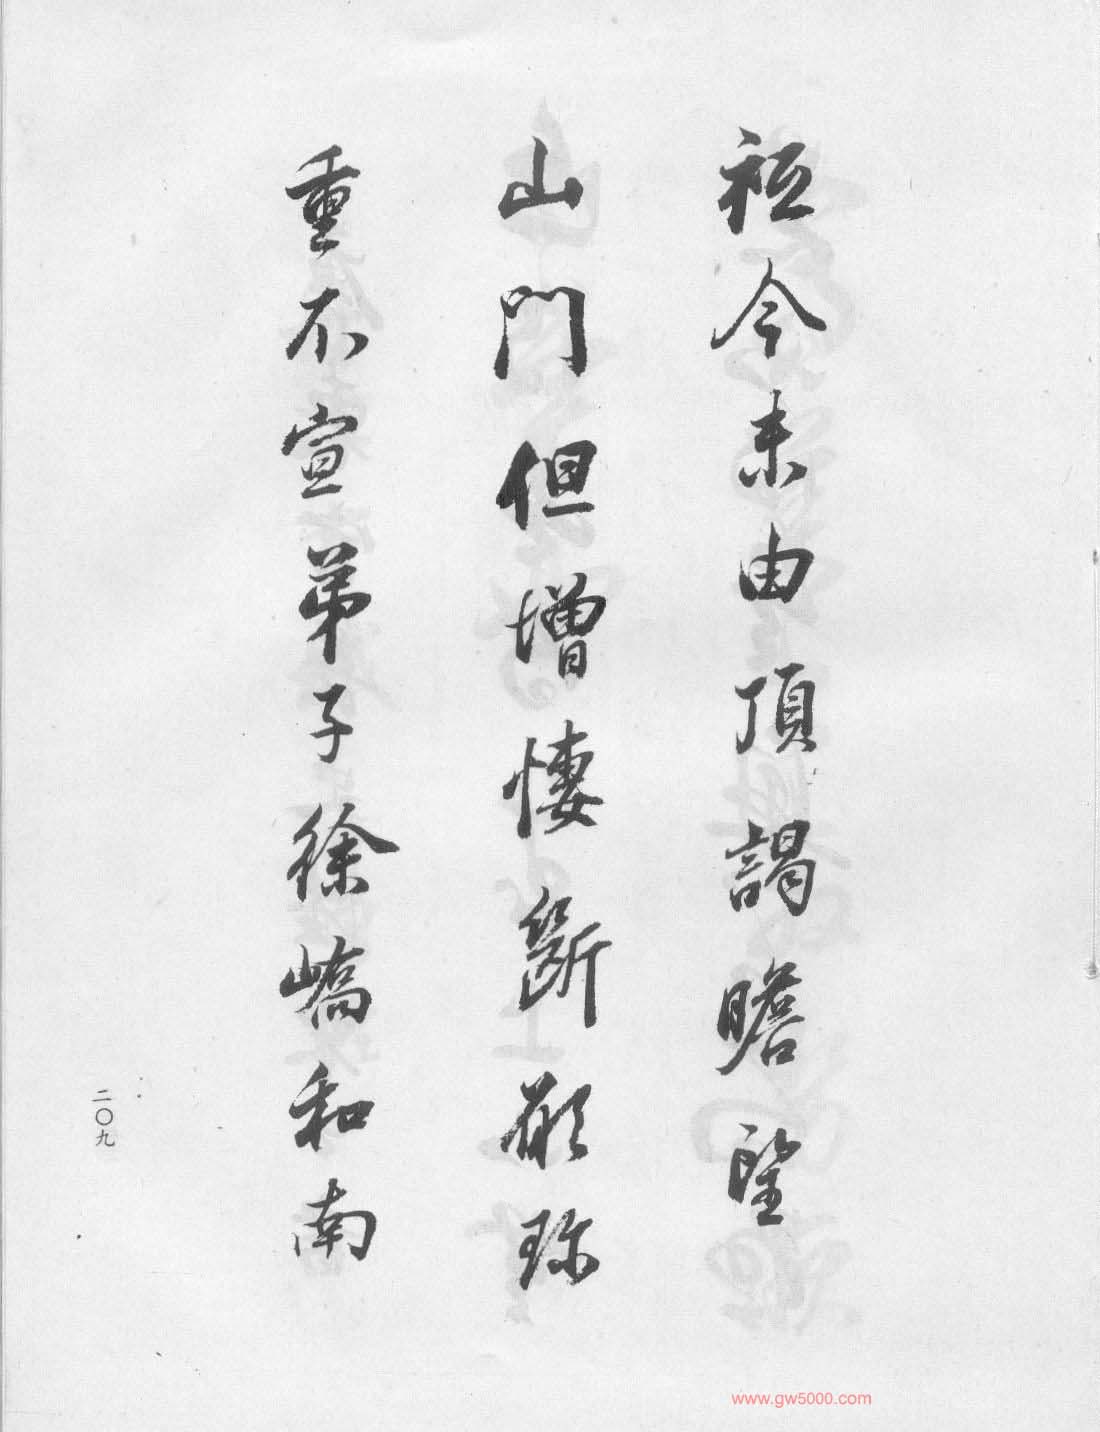 祗今未由頂謁瞻望
山門但增悽斷願珍
重不宣弟子徐嶠和南
二〇九
www.gw5000.com